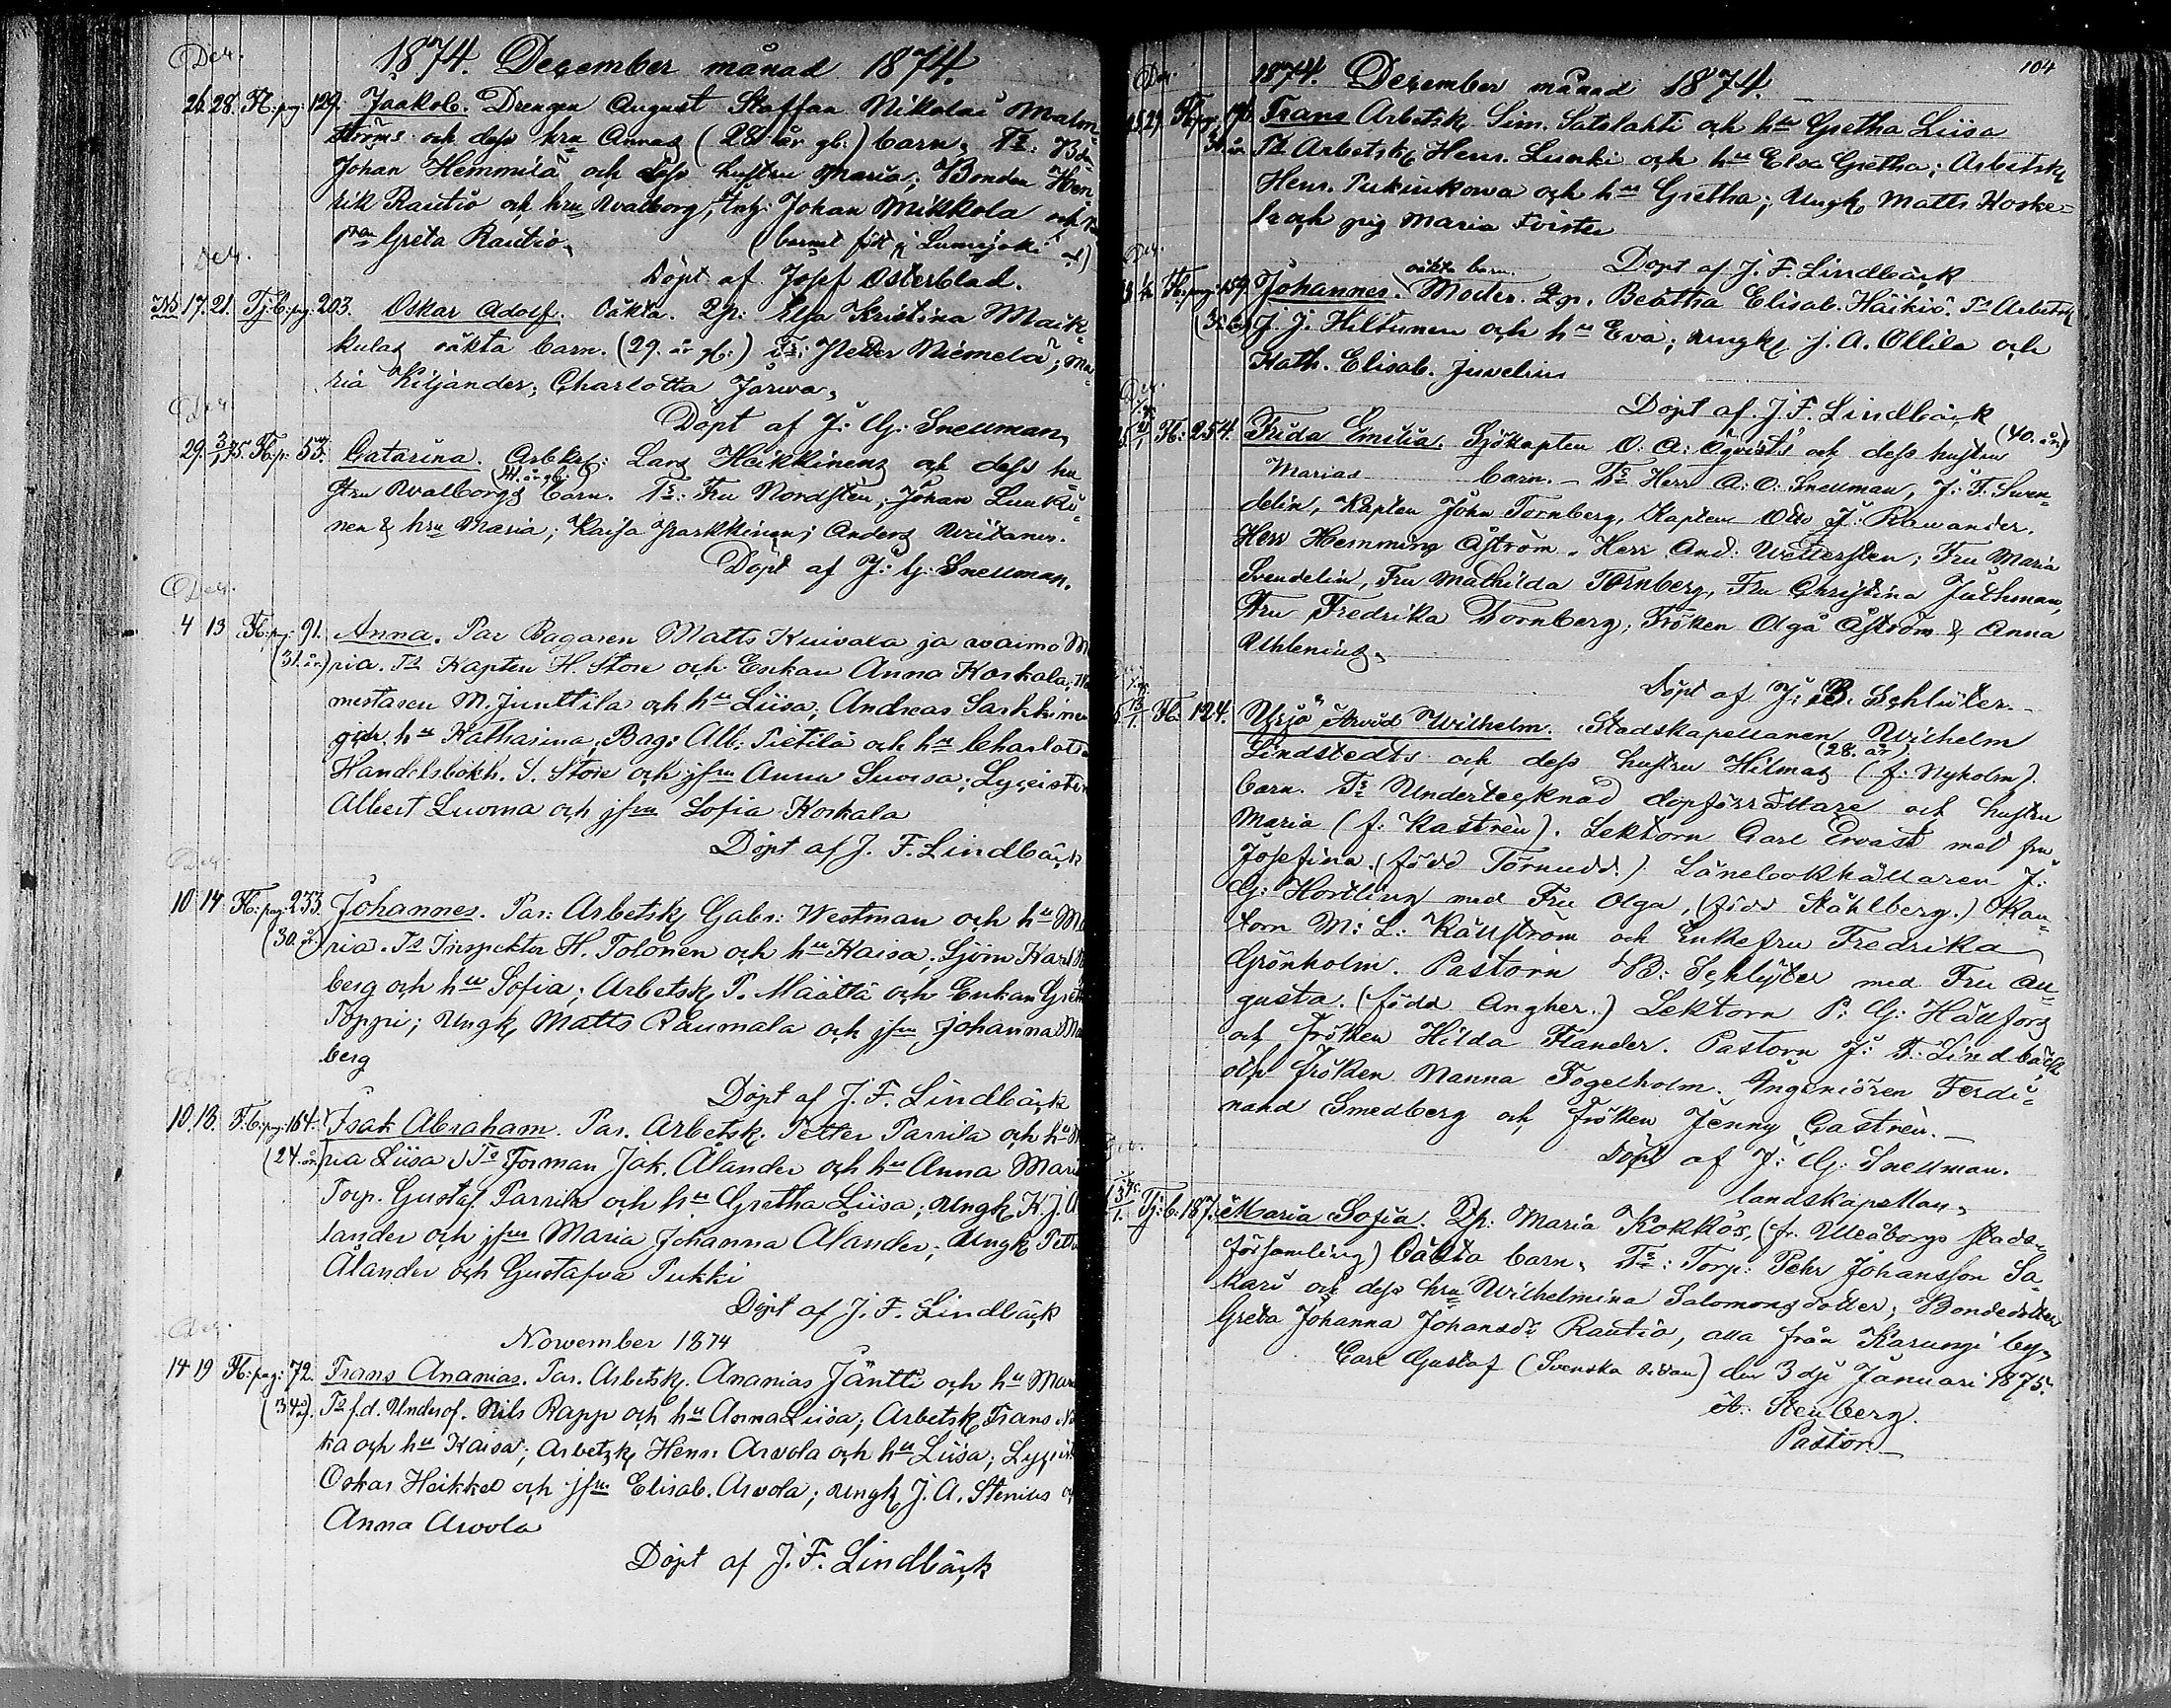 Dec.
1874. December månad 1874.
26. 28. Fl: pag: 129. Jaakob. Drengen August Staffan Nikolai Malm-
ströms och dess hru Annas (28 år gl.) barn. Ts: Bdn
Johan Hemmilä och dess hustru Maria; Bonden Hen
rik Rautio och hru Walborg; Johan Mikkola och
Greta Rautio. (barnet född i Lumijoki)
Dec. Döpt af Josef Osterblad.
NB 17. 21. Tj: b: pag: 203. Oskar Adolf. Oäkta. Qp: Elsa Kristina Maik-
kulas oäkta barn. (29. år gl:) Ts: Petter Niemelä; Ma-
ria Kiljander; Charlotta Jarwa,
Dec. Döpt af J: G: Snellman,
29. 3/1 75. Fl: p: 53. Catarina. Arbkrl: Lars Heikkinens och dess hu-
stru Walborgs barn. Ts: Fru Nordsten; Johan Lunki-
nen & hru Maria; Kaisa Parkkinen; Anders
Döpt af J: G: Snellman.
Dec.
4 13 Fl: pag: 91. Anna. Par Bagaren Matts Kuivala ja waimo Ma
(31. år) ria. Ts Kapten H. Store och Enkan Anna Koskala;
mestaren M. Junttila och hu Liisa; Andreas Sarkkinen
och hu Katharina; Bag: Alb: Pietilä och hu Charlotta
Handelsbokh. S. Store och jfru Anna Suomsa; Lyceisten
Albert Luoma och jfru Sofia Koskala
Dec. Döpt af J. F. Lindbäck
10. 14. Fl: pag: 233. Johannes. Par: Arbetsk. Gabr: Westman och hu Ma
(30. år) ria. Ts Inspektor H. Tolonen och hu Kaisa; Sjöm Karl
berg och hu Sofia; Arbetsk. P. Määttä och Enkan Greta
Toppi; Ungk Matts Raumala och jfru Johanna
berg
Döpt af J. F. Lindbäck
10. 13. F. b: pag: 164. Isak Abraham. Par. Arbetsk. Petter Parrila och hu Ma
(24. år) ria Liisa Ts Forman Jak. Ålander och hu Anna Maria
Torp. Gustaf Parrila och hu Gretha Liisa; Ungk K. J. Å
lander och jfru Maria Johanna Ålander; Ungk Petter
Ålander och Gustafva Pukki
Döpt af J. F. Lindbäck
November 1874
14 19 Fl: pag: 72. Frans Ananias. Par. Arbetsk. Ananias Jäntti och hu Maria
(34 år). Ts f.d. Underof. Nils Rapp och hu Anna Liisa; Arbetsk Frans
ka och hu Kaisa; Arbetsk Henr: Arvola och hu Liisa; Lyceist
Oskar Heikkel och jfru Elisab. Arvola; Ungk J. A. Stenius och
Anna Arvola
Döpt af J. F. Lindbäck
104
Dec. 1874. December månad 1874.
Frans Arbetsk Sim. Satolahti och hu Gretha Liisa
Ts Arbetsk Henr. Lunki och hu Elsa Gretha; Arbetsk
Henr. Pukinkorwa och hu Gretha; Ungk Matts Koske-
la och pig Maria Forster
Dec. Döpt af J. F. Lindbäck
oäkta barn.
Fl: pag: 159 Johannes. Moder. Qp. Beatha Elisab. Häikiö. Ts Arbetsk
J. J. Hiltunen och hu Eva; Ungk J. A. Ollila och
Kath. Elisab. Juvelius
Dec. Döpt af J. F. Lindbäck
Fl: 254. Frida Emilia. Sjökapten O. A: Öqvists och dess hustru (40. år)
Marias barn. - Ts Herr A: O: Snellman, J: F. Swen-
delin, Kapten John Tornberg, Kapten Otto J: Rawander.
Herr Hemming Åström. Herr And: Wettersten; Fru Maria
Svendelin, Fru Mathilda Tornberg, Fru Christina Juthman,
Fru Fredrika Tornberg; Fröken Olga Åström & Anna
Uhlenius,
Döpt af J: B. Schlüter.
Fl. 124. Yrjö Arvid Wilhelm. Stadskapellanen Wilhelm
Lindstedts och dess hustru Hilmas (28. år) (f: Nyholm)
barn. Ts Undertecknad dopförrättare och hustru
Maria (f: Kastrén). Lektorn Carl Ervast med fru
Josefina. (född Törnudd.) Länebokhållaren J:
G: Hortling med Fru Olga, (född Ståhlberg.) Kan-
torn M: L: Källström och Enkefru Fredrika
Grönholm. Pastorn B: Schlyter med Fru Au-
gusta. (född Angher.) Lektorn P: G: Hällfors
och fröken Hilda Flander. Pastorn J: F. Lindbäck
och fröken Nanna Fogelholm. Ingeniören Ferdi-
nand Smedberg och fröken Jenny Castrén.
Döpt af J: G: Snellman.
landskapellan,
Tj: b: 187. Maria Sofia. Qp: Maria Kokkos, (fr. Uleåborgs stads-
församling) Oäkta barn, Ts: Torp: Pehr Johansson Sa-
kari och dess hru Wilhelmina Salomonsdotter; Bondedotter
Greta Johanna Johansdr Rautio, alla från Karungi by,
Carl Gustaf (Svenska sidan) den 3dje Januari 1875.
A. Stenberg.
Pastor.